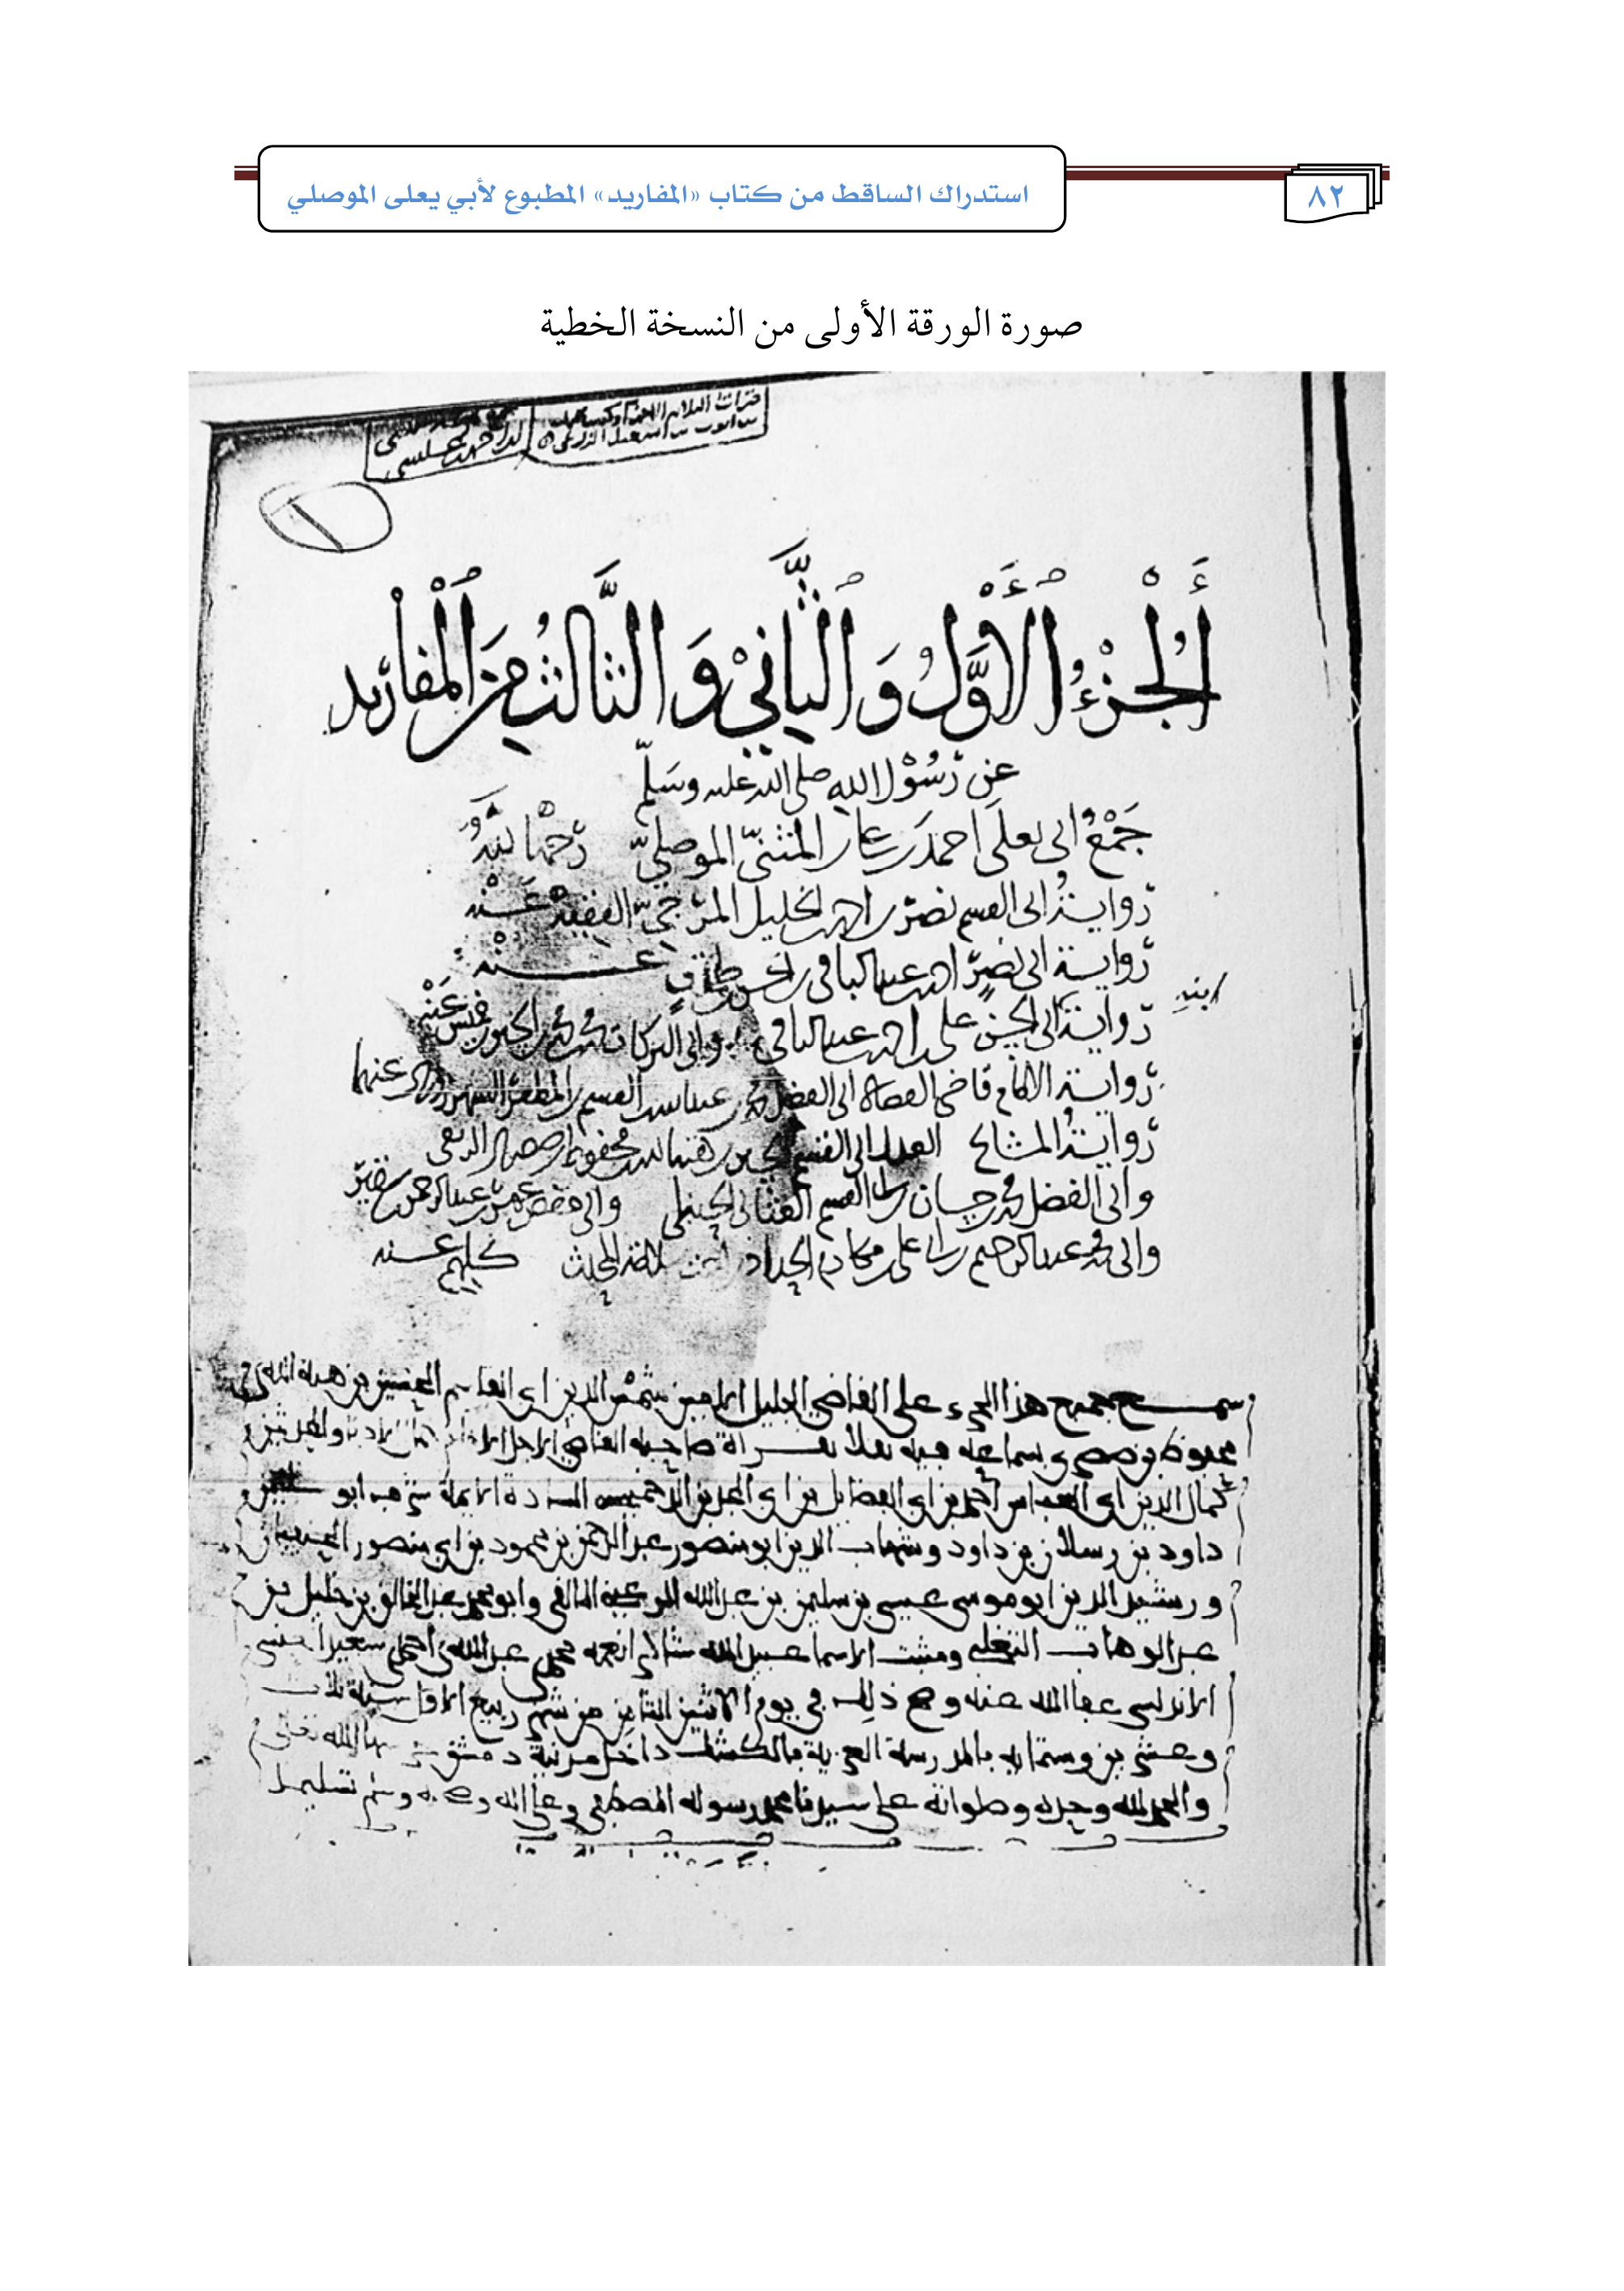 استدراك الساقط من كتاب «المفاريد» المطبوع لأبي يعلى الموصلي
٨٢
صورة الورقة الأولى من النسخة الخطية
الْجُزْءُ الْأَوَّلُ وَالثَّانِيْ وَالثَّالِثُ مِنَ الْمفاريد
عن رَسُوْل الله صلى الله عليه وسَلّم
جَمْعُ ابى يعلَى احمدَ بن على بن المثنىّ الموصلىّ رَحمهُ اللهُ
روايـة ابى القسم نصر بن احمد بن الخليل المرجىّ الفقيه عَنْه
روايـة ابى نصر احمد بن عبد الباقى بن الحسن بن طوق عنه
ابنه
رواية ابى الحسن على بن احمد بن عبد الباقى وابى البركات محمد بن محمد بن خميس عَنْه
رواية الامام قاضى القضاة ابى الفضل محمد بن عبد الله بن القسم بن المظفر الشهرزورى عنهما
روايةُ المشايخ العدل ابى القسم الحسين بن هبة الله بن محفوظ بن صصرى الربعى
وابى الفضل محمد بن حسان بن
وابى محمد عبد الرحيم بن على
الحديث كلهم عنه
سمع جميع هذا الجزء على القاضي الجليل الامين شمس الدين ابي القاسم الحسين بن هبة الله بن
محفوظ بن صصرى بسماعه فيه نقلا بقراة صاحبه القاضي الاجل
كمال الدين ابي العباس احمد بن ابي الفضايل بن ابي المجد بن السادة الايمة شرف ابو
داود بن رسلان بن داود وشهاب الدين ابو منصور عبد الرحمن بن محمود بن ابي منصور
ورشيد الدين ابو موسى عيسى بن سليمن بن عبد الله المالقي وابو محمد عبد الخالق بن خليل بن
عبد الوهاب التغلبي ومثبت الاسما عبيد الله
الاندلسي عفا الله عنه وصح ذلك في يوم الاثنين الثامن من شهر ربيع الاول سنة ثلاث
وعشرين وستمايه بالمدرسة العزيزية بالكشك داخل مدينة دمشق حرسها الله تعالى
والحمد لله وحده وصلواته على سيدنا محمد رسوله المصطفى وعلى اله وصحبه وسلم تسليما